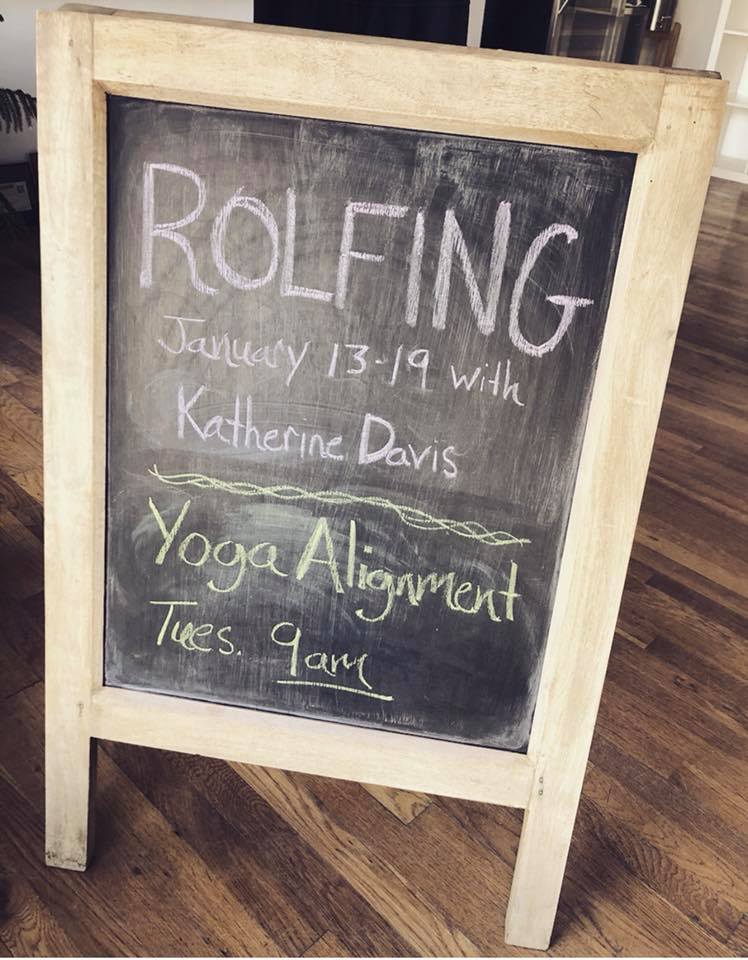 ROLFING
January 13-19 with
Katherine Davis
Yoga Alignment
Tues. 9am